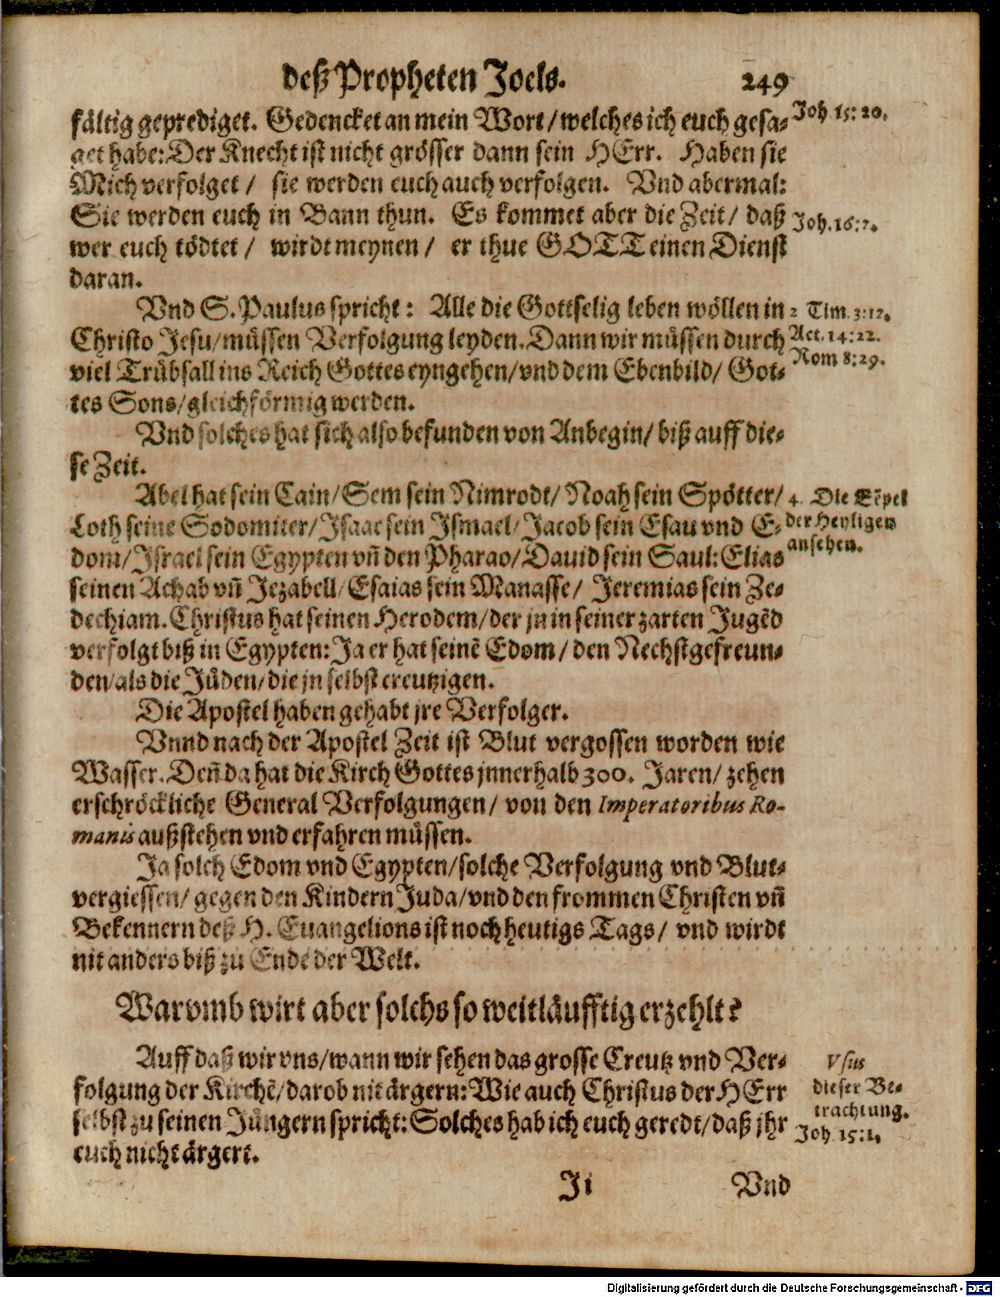 deß Propheten Joels. 249
fältig geprediget. Gedencket an mein Wort/ welches ich euch gesa- Joh 15: 20.
get habe: Der Knecht ist nicht grösser dann sein HErr. Haben sie
Mich verfolget/ sie werden euch auch verfolgen. Vnd abermal:
Sie werden euch in Bann thun. Es kommet aber die Zeit/ daß Joh. 16: 2.
wer euch tödtet/ wirdt meynen/ er thue GOTT einen Dienst
daran.
Vnd S. Paulus spricht: Alle die Gottselig leben wöllen in 2 Tim. 3: 12.
Christo Jesu/ müssen Verfolgung leyden. Dann wir müssen durch Act. 14: 22.
viel Trübsall ins Reich Gottes eyngehen/ vnd dem Ebenbild/ Got- Rom 8: 29.
tes Sons/ gleichförmig werden.
Vnd solches hat sich also befunden von Anbegin/ biß auff die-
se Zeit.
Abel hat sein Cain/ Sem sein Nimrodt/ Noah sein Spötter/ 4. Die Exẽpel
Loth seine Sodomiter/ Isaac sein Ismael/ Jacob sein Esau vnd E- der Heyligen
dom/ Israel sein Egypten vñ den Pharao/ Dauid sein Saul: Elias ansehen.
seinen Achab vñ Jezabell/ Esaias sein Manasse/ Jeremias sein Ze-
dechiam. Christus hat seinen Herodem/ der jn in seiner zarten Jugẽd
verfolgt biß in Egypten: Ja er hat seinẽ Edom/ den Nechstgefreun-
den/ als die Jüden/ die jn selbst creutzigen.
Die Apostel haben gehabt jre Verfolger.
Vnnd nach der Apostel Zeit ist Blut vergossen worden wie
Wasser. Deñ da hat die Kirch Gottes jnnerhalb 300. Jaren/ zehen
erschröckliche General Verfolgungen/ von den Imperatoribus Ro-
manis außstehen vnd erfahren müssen.
Ja solch Edom vnd Egypten/ solche Verfolgung vnd Blut-
vergiessen/ gegen den Kindern Juda/ vnd den frommen Christen vñ
Bekennern deß H. Euangelions ist noch heutigs Tags/ vnd wirdt
nit anders biß zu Ende der Welt.
Warvmb wirt aber solchs so weitläufftig erzehlt?
Auff daß wir vns/ wann wir sehen das grosse Creutz vnd Ver- Vsus
folgung der Kirchẽ/ darob nit ärgern: Wie auch Christus der HErr dieser Be-
selbst zu seinen Jüngern spricht: Solches hab ich euch geredt/ daß jhr trachtung.
euch nicht ärgert. Joh
Ii Vnd
Digitalisierung gefördert durch die Deutsche Forschungsgemeinschaft - DFG